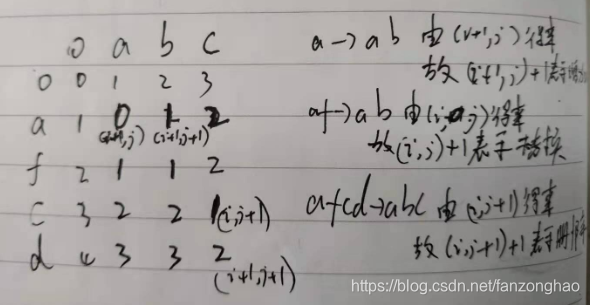 0 a b c
0 0 1 2 3
a 1 0 1 2
(i+1,j) (i+1,j+1)
f 2 1 1 2
c 3 2 2 1(i,j+1)
d 4 3 3 2
(i+1,j+1)
a→ab 由(i+1,j)得来
故(i+1,j)+1表示增
af→ab 由(i,j)得来
故(i,j)+1表示替换
afcd→abc 由(i,j+1)得来
故(i,j+1)+1表示删除
https://blog.csdn.net/fanzonghao